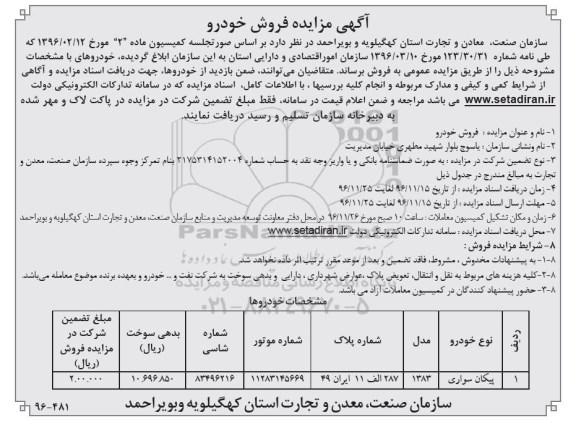 آگهی مزایده فروش خودرو
سازمان صنعت، معادن و تجارت استان کهگیلویه و بویراحمد در نظر دارد بر اساس صورتجلسه کمیسیون ماده "۲" مورخ ۱۳۹۶/۰۲/۱۲ که
طی نامه شماره ۱۲۳/۳۰/۳۱ مورخ ۱۳۹۶/۰۳/۱۰ سازمان اموراقتصادی و دارایی استان به این سازمان ابلاغ گردیده، خودروهای با مشخصات
مشروحه ذیل را از طریق مزایده عمومی به فروش برساند. متقاضیان می‌توانند، ضمن بازدید از خودروها، جهت دریافت اسناد مزایده و آگاهی
از شرایط کمی و کیفی و مدارک مربوطه و انجام کلیه بررسیها ، با اطلاعات کامل، اسناد مزایده که در سامانه تدارکات الکترونیکی دولت
www.setadiran.ir می باشد مراجعه و ضمن اعلام قیمت در سامانه، فقط مبلغ تضمین شرکت در مزایده در پاکت لاک و مهر شده
به دبیرخانه سازمان تسلیم و رسید دریافت نمایند.
۱- نام و عنوان مزایده : فروش خودرو
۲- نام ونشانی سازمان : یاسوج بلوار شهید مطهری خیابان مدیریت
۳- نوع تضمین شرکت در مزایده : به صورت ضمانتنامه بانکی و یا واریز وجه نقد به حساب شماره ۲۱۷۵۳۱۴۱۵۲۰۰۴ بنام تمرکز وجوه سپرده سازمان صنعت، معدن و
تجارت به مبالغ مندرج در جدول ذیل
۴- زمان دریافت اسناد مزایده : از تاریخ ۹۶/۱۱/۱۵ لغایت ۹۶/۱۱/۲۵
۵- مهلت ارسال اسناد مزایده : از تاریخ ۹۶/۱۱/۱۵ لغایت ۹۶/۱۱/۲۵
۶- زمان و مکان تشکیل کمیسیون معاملات : ساعت ۱۰ صبح مورخ ۹۶/۱۱/۲۶ در محل دفتر معاونت توسعه مدیریت و منابع سازمان صنعت، معدن و تجارت استان کهگیلویه و بویراحمد
۷- محل دریافت اسناد مزایده : سامانه تدارکات الکترونیکی دولت www.setadiran.ir
۸- شرایط مزایده فروش :
۸-۱- به پیشنهادات مخدوش ، مشروط، فاقد تضمین و بعد از موعد مقرر ترتیب اثر داده نخواهد شد.
۸-۲-کلیه هزینه های مربوط به نقل و انتقال، تعویض پلاک ،عوارض شهرداری ، دارایی و بدهی سوخت به شرکت نفت و .. خودرو و بعهده برنده موضوع معامله می‌باشد.
۸-۳- حضور پیشنهاد کنندگان در کمیسیون معاملات آزاد می باشد.
مشخصات خودروها
ردیف | نوع خودرو | مدل | شماره پلاک | شماره موتور | شماره شاسی | بدهی سوخت (ریال) | مبلغ تضمین شرکت در مزایده فروش (ریال)
۱ | پیکان سواری | ۱۳۸۳ | ۲۸۷ الف ۱۱ ایران ۴۹ | ۱۱۲۸۳۱۴۵۶۶۹ | ۸۳۴۹۶۲۱۶ | ۱۰.۶۹۶.۸۵۰ | ۲.۰۰۰.۰۰۰
سازمان صنعت، معدن و تجارت استان کهگیلویه وبویراحمد
۹۶-۴۸۱
ParsNamadData
۰۲۱-۸۸۳۴۹۶۷۰-۵